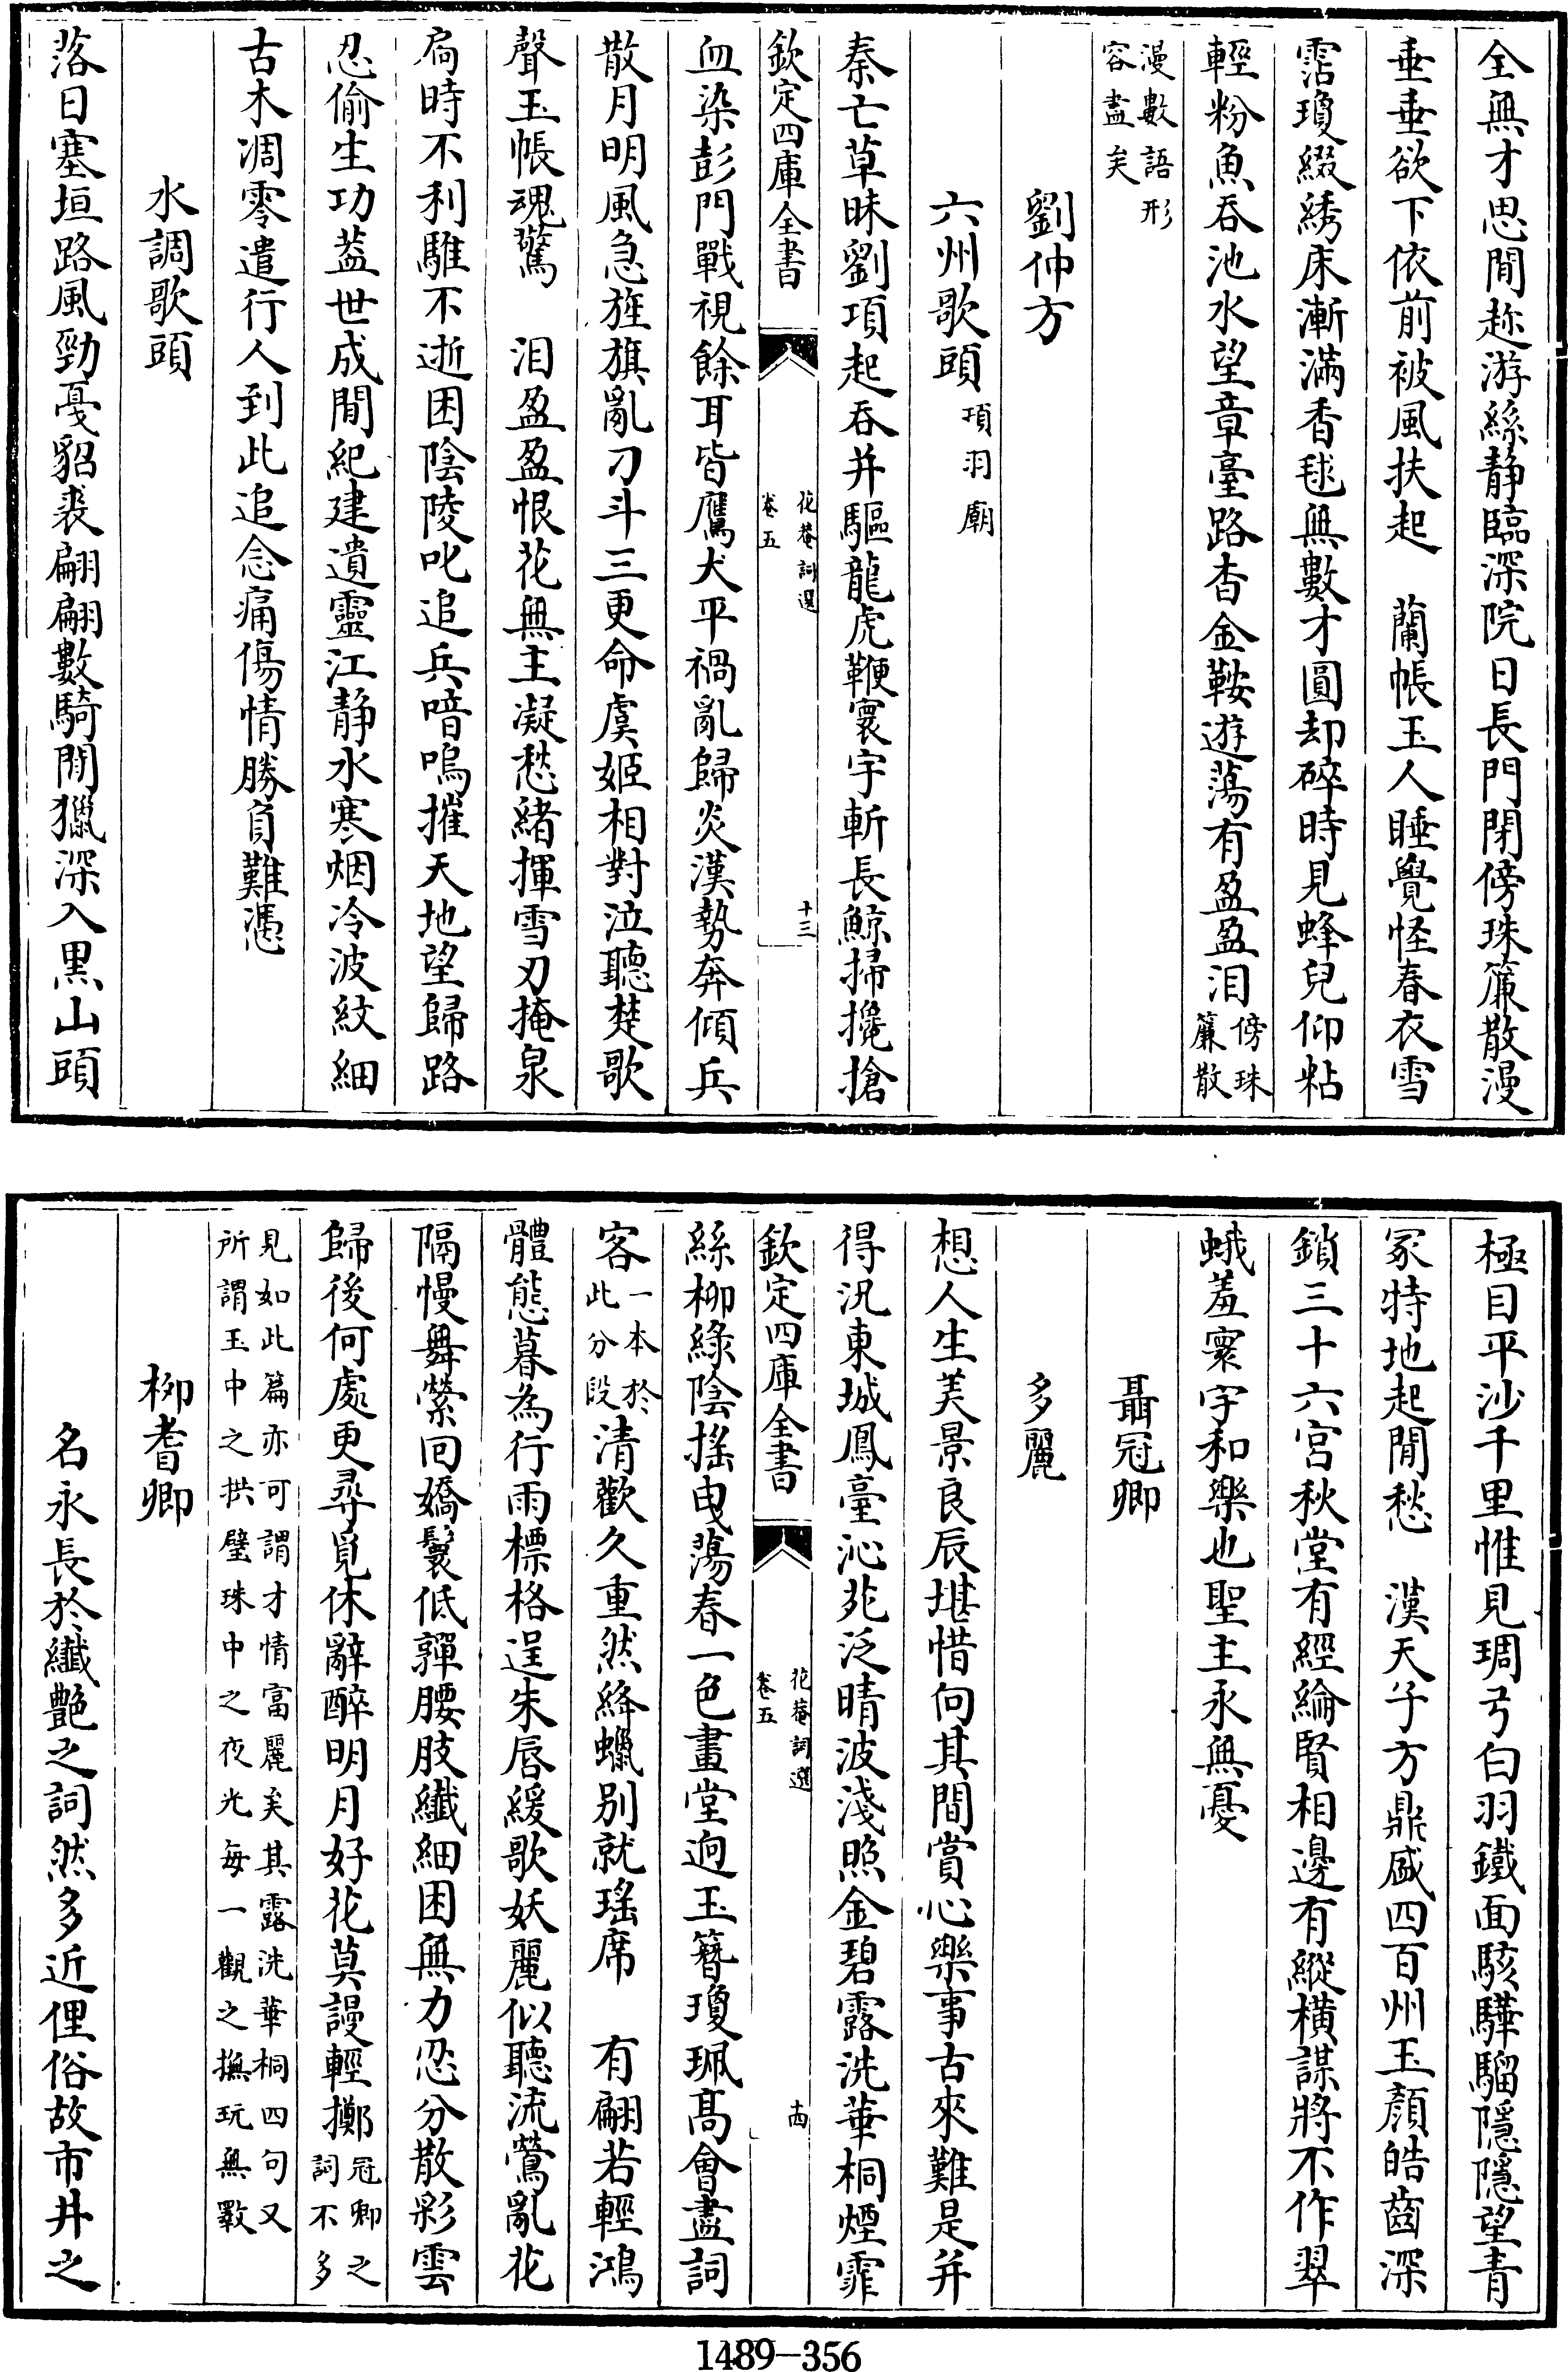 全無才思閒趂游絲静臨深院日長門閉傍珠簾散漫
垂垂欲下依前被風扶起　蘭帳玉人睡覺怪春衣雪
霑瓊綴綉床漸滿香毬無數才圓却碎時見蜂兒仰粘
輕粉魚吞池水望章臺路杳金鞍遊蕩有盈盈泪傍珠簾散
漫數語形容盡矣
劉仲方
六州歌頭項羽廟
秦亡草昧劉項起吞并驅龍虎鞭寰宇斬長鯨掃攙搶
欽定四庫全書
花菴詞選
卷五
十三
血染彭門戰視餘耳皆鷹犬平禍亂歸炎漢勢奔傾兵
散月明風急旌旗亂刁斗三更命虞姬相對泣聽楚歌
聲玉帳魂驚　泪盈盈恨花無主凝愁緒揮雪刃掩泉
扃時不利騅不逝困陰陵叱追兵喑嗚摧天地望歸路
忍偷生功葢世成閒紀建遺靈江静水寒烟冷波紋細
古木凋零遣行人到此追念痛傷情勝負難憑
水調歌頭
落日塞垣路風勁戞貂裘翩翩數騎閒獵深入黒山頭
極目平沙千里惟見琱弓白羽鐵面駭驊騮隱隱望青
冢特地起閒愁　漢天子方鼎盛四百州玉顏皓齒深
鎖三十六宮秋堂有經綸賢相邊有縱横謀將不作翠
蛾羞寰宇和樂也聖主永無憂
聶冠卿
多麗
想人生美景良辰堪惜向其間賞心樂事古來難是并
得況東城鳳臺沁苑泛晴波淺照金碧露洗華桐煙霏
欽定四庫全書
花菴詞選
卷五
十四
絲柳綠陰揺曳蕩春一色畫堂迥玉簪瓊珮髙會盡詞
客一本於此分段清歡久重然絳蠟别就瑤席　有翩若輕鴻
體態暮為行雨標格逞朱唇緩歌妖麗似聽流鶯亂花
隔慢舞縈回嬌鬟低嚲腰肢纖細困無力忍分散彩雲
歸後何處更尋覓休辭醉明月好花莫謾輕擲冠卿之詞不多
見如此篇亦可謂才情富麗矣其露洗華桐四句又
所謂玉中之拱璧珠中之夜光每一觀之撫玩無斁
柳耆卿
名永長於纖艶之詞然多近俚俗故市井之
1489-356